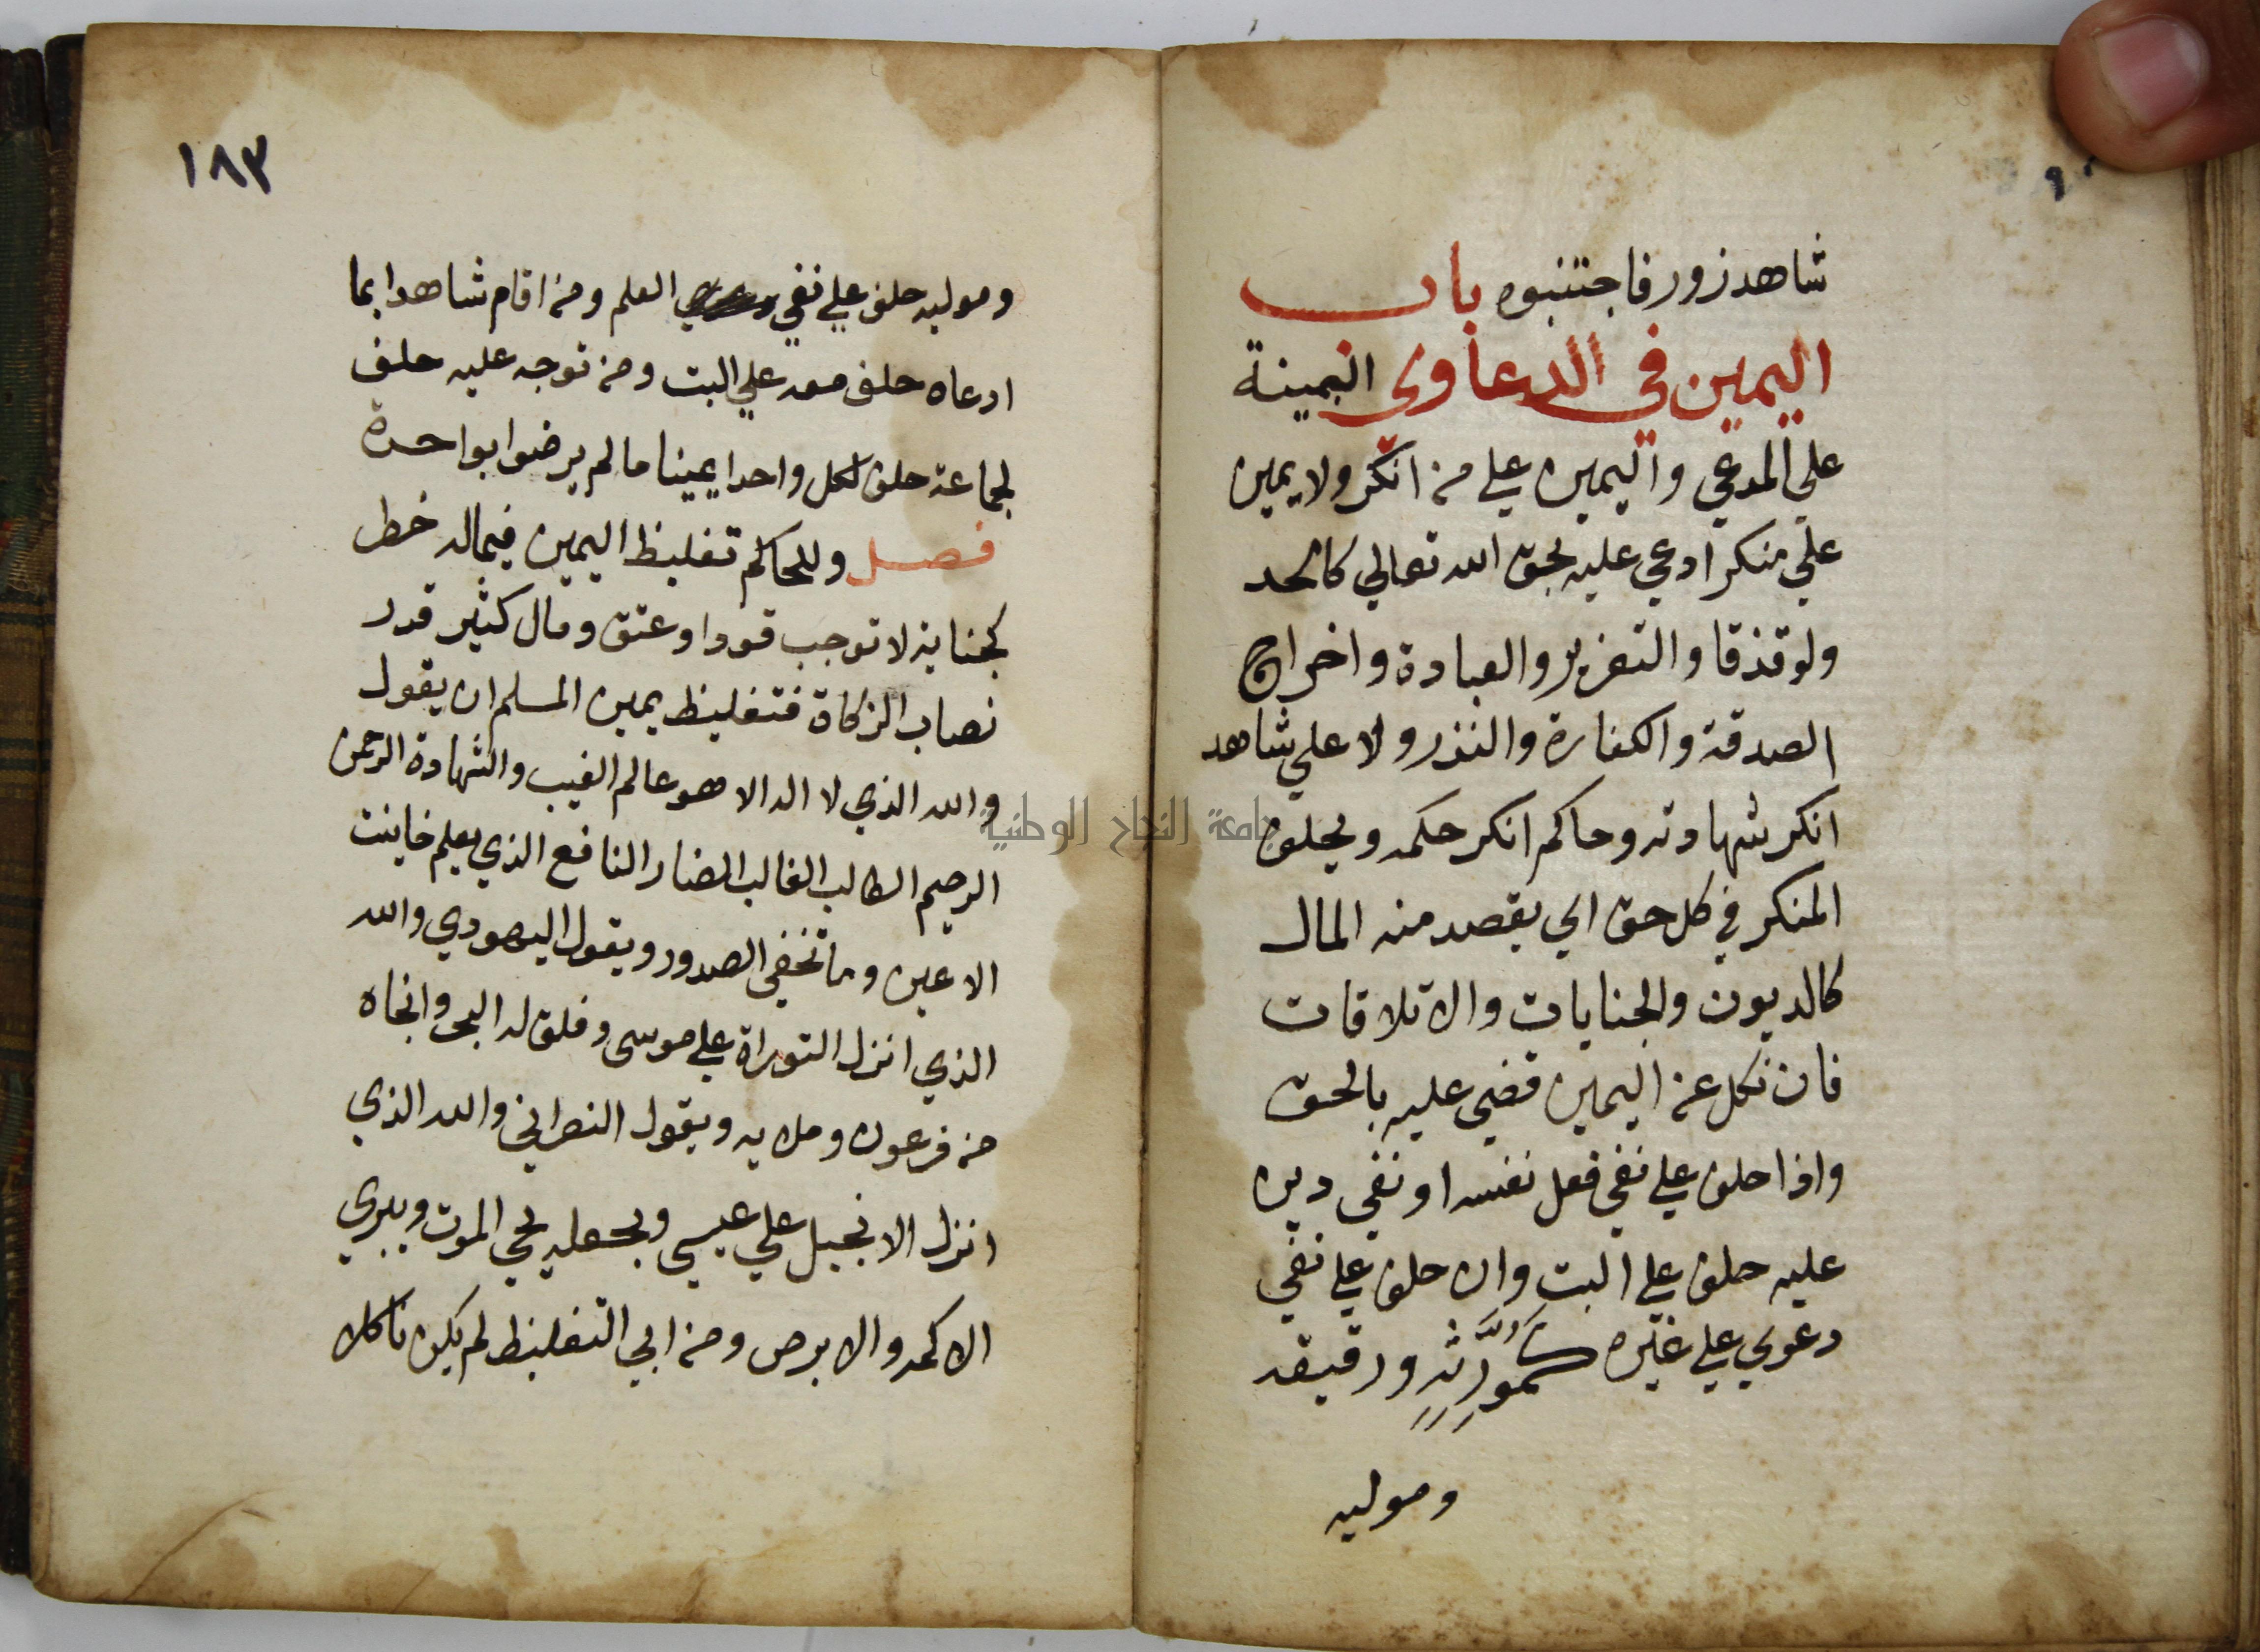 شاهد زور فاجتنبوه باب
اليمين في الدعاوى البمينة
علي المدعي واليمين علي من انكر ولا يمين
علي منكر ادعي عليه بحق الله تعالي كالحد
ولو قذفا والتعزير والعبادة واخراج
الصدقة والكفارة والنذر ولا علي شاهد
انكر شهادته وحاكم انكر حكمه ويحلف
المنكر في كل حق ا لي يقصد منه المال
كالديون والجنايات والاتلافات
فان نكل عن اليمين قضي عليه بالحق
واذا حلف علي نفي فعل نفسه او نفي دين
عليه حلف علي البت وان حلف علي نفي
دعوي علي غيره كَمُوَرِّثِهِ ورقيقه
وموليه
١٨٣
وموليه حلف علي نفي العلم ومن اقام شاهدا بما
ادعاه حلف معه علي البت ومن توجه عليه حلف
لجماعة حلف لكل واحد يمينا ما لم يرضوا بواحدة
فصل وللحاكم تغليظ اليمين فيما له خطر
كجناية لا توجب قودا وعتق ومال كثير قدر
نصاب الزكاة فتغليظ يمين المسلم ان يقول
والله الذي لا اله الا هو عالم الغيب والشهادة الرحمن
الرحيم الطالب الغالب الضار النافع الذي يعلم خاينت
الاعين وما تخفي الصدور ويقول اليهودي والله
الذي انزل التوراة علي موسى وفلق له البحر وانجاه
من فرعون وملايه ويقول النصراني والله الذي
انزل الانجيل علي عيسي وجعله يحي الموت ويبري
الاكمه والابرص ومن ابي التغليظ لم يكن ناكلا
جامعة النجاح الوطنية